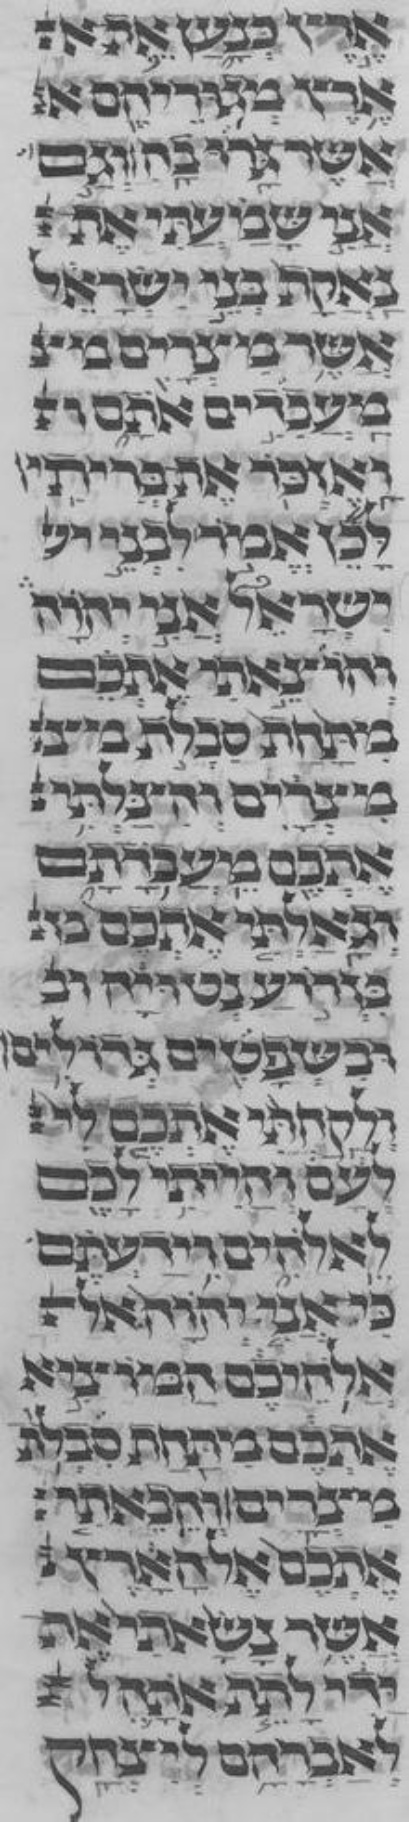 ארץ כנען את א
ארץ מגריהם א
אשר גרו בה וגם
אני שמעתי את
נאקת בני ישראל
אשר מצרים מצ
מעבדים אתם ו
ואזכר את בריתי
לכן אמר לבני יש
ישראל אני יהוה
והוצאתי אתכם
מתחת סבלת מצ
מצרים והצלתי
אתכם מעבדתם
וגאלתי אתכם בז
בזרוע נטויה וב
ובשפטים גדולים
ולקחתי אתכם לי
לעם והייתי לכם
לאלהים וידעתם
כי אני יהוה אל
אלהיכם המוציא
אתכם מתחת סבלת
מצרים והבאתי
אתכם אל הארץ
אשר נשאתי את
ידי לתת אתה ל
לאברהם ליצחק